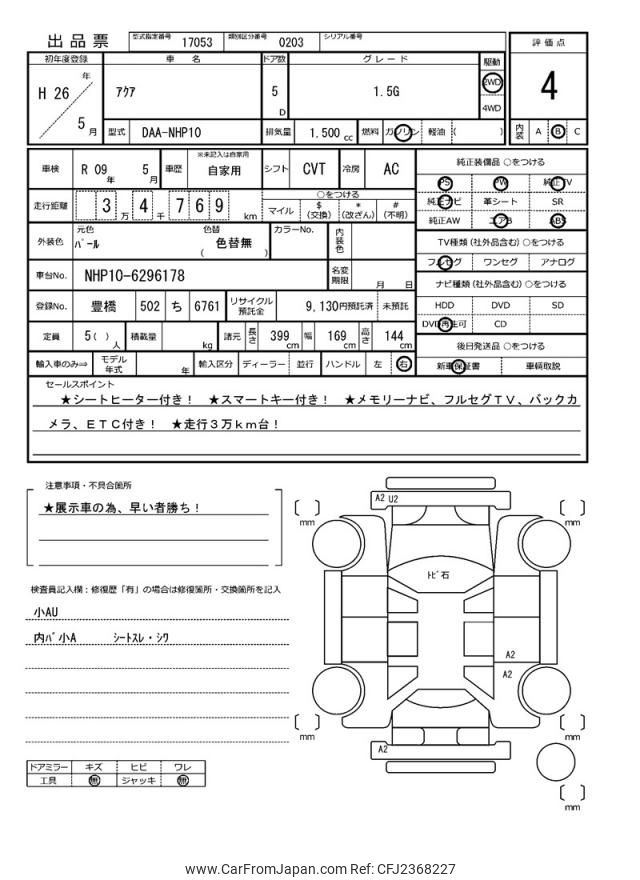 出品票
型式指定番号 17053 類別区分番号 0203 シリアル番号
評価点
4
内装 A B C
初年度登録 車名 ドア数 グレード 駆動
H 26 年 5 月
アクア
5 D
1.5G
2WD
4WD
型式 DAA-NHP10 排気量 1.500 cc 燃料 ガソリン 軽油 ( )
車検 R 09 年 5 月 車歴 ※未記入は自家用 自家用 シフト CVT 冷房 AC
走行距離 3 万 4 千 7 6 9 km
○をつける
マイル $(交換) *(改ざん) #(不明)
外装色 元色 パール 色替 ( 色替無 ) カラーNo. 内装色
車台No. NHP10-6296178 名変期限 月 日
登録No. 豊橋 502 ち 6761 リサイクル預託金 9,130円預託済 未預託
定員 5( ) 人 積載量 kg 諸元 長さ 399 cm 幅 169 cm 高さ 144 cm
輸入車のみ⇒ モデル年式 年 輸入区分 ディーラー 並行 ハンドル 左 右
純正装備品 ○をつける
PS PW 純正TV
純正ナビ 革シート SR
純正AW エアB ABS
TV種類 (社外品含む) ○をつける
フルセグ ワンセグ アナログ
ナビ種類 (社外品含む) ○をつける
HDD DVD SD
DVD再生可 CD
後日発送品 ○をつける
新車保証書 車輌取説
セールスポイント
★シートヒーター付き! ★スマートキー付き! ★メモリーナビ、フルセグTV、バックカ
メラ、ETC付き! ★走行3万km台!
注意事項・不具合箇所
★展示車の為、早い者勝ち!
検査員記入欄:修復歴「有」の場合は修復箇所・交換箇所を記入
小AU
内バ小A シートスレ・シワ
ドアミラー キズ ヒビ ワレ
工具 無 ジャッキ 無
A2 U2
mm
mm
トビ石
A2
A2
mm
mm
A2
mm
www.CarFromJapan.com Ref: CFJ2368227